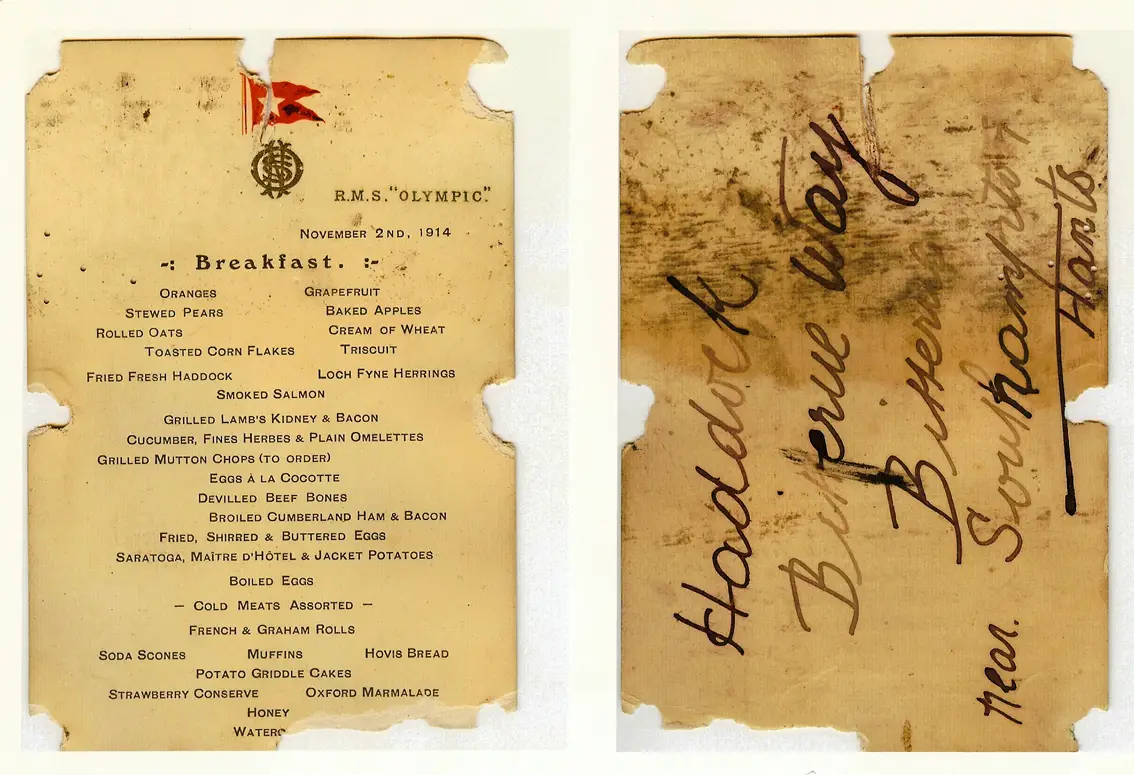 R.M.S. "OLYMPIC."
NOVEMBER 2ND, 1914
-: Breakfast. :-
ORANGES GRAPEFRUIT
STEWED PEARS BAKED APPLES
ROLLED OATS CREAM OF WHEAT
TOASTED CORN FLAKES TRISCUIT
FRIED FRESH HADDOCK LOCH FYNE HERRINGS
SMOKED SALMON
GRILLED LAMB'S KIDNEY & BACON
CUCUMBER, FINES HERBES & PLAIN OMELETTES
GRILLED MUTTON CHOPS (TO ORDER)
EGGS À LA COCOTTE
DEVILLED BEEF BONES
BROILED CUMBERLAND HAM & BACON
FRIED, SHIRRED & BUTTERED EGGS
SARATOGA, MAÎTRE D'HÔTEL & JACKET POTATOES
BOILED EGGS
— COLD MEATS ASSORTED —
FRENCH & GRAHAM ROLLS
SODA SCONES MUFFINS HOVIS BREAD
POTATO GRIDDLE CAKES
STRAWBERRY CONSERVE OXFORD MARMALADE
HONEY
WATERC
Haddock
Bitterne Way
Bitterne
near. Southampton
Hants